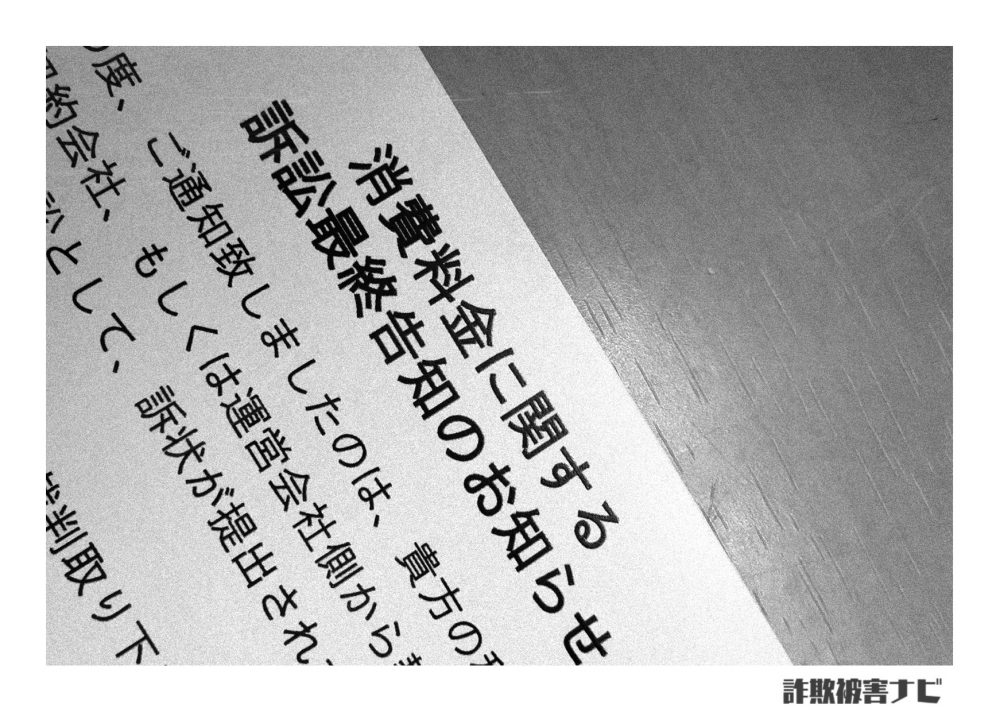 消費料金に関する
訴訟最終告知のお知らせ
の度、ご通知致しましたのは、貴方の
約会社、もしくは運営会社側から
訟として、訴状が提出され
判取り下
詐欺被害ナビ